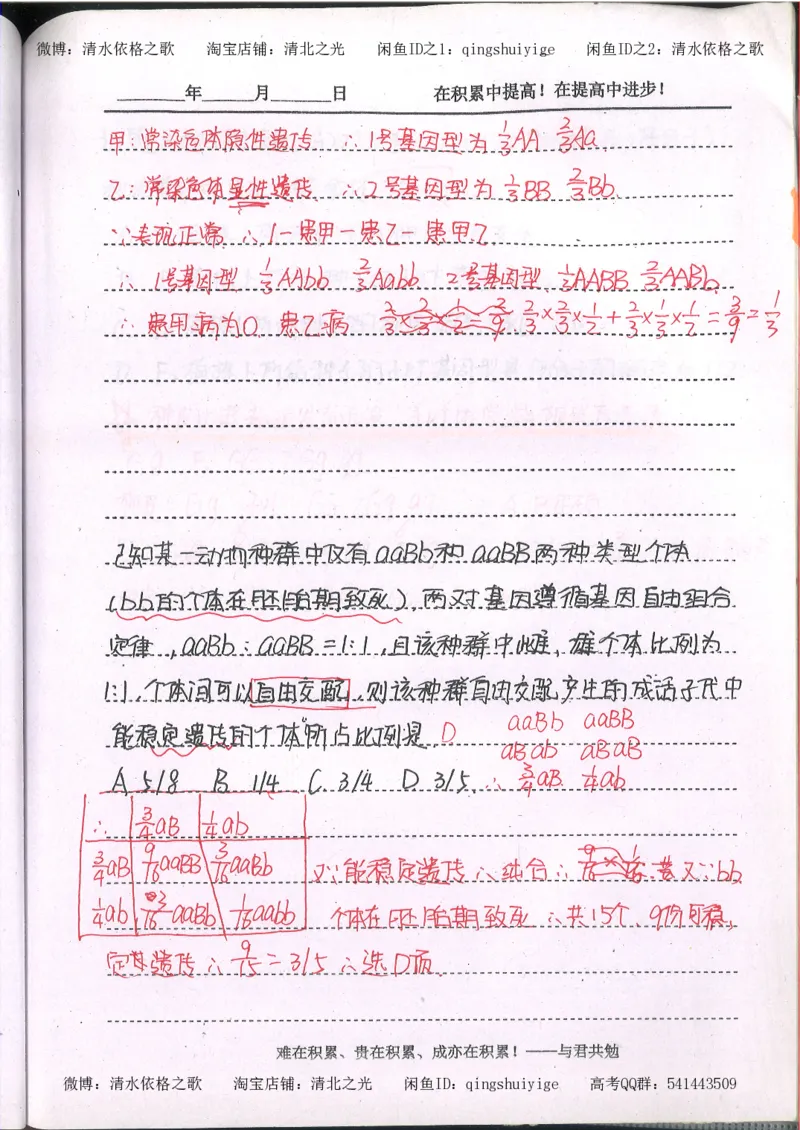 微博：清水依格之歌 淘宝店铺：清北之光 闲鱼ID之1：qingshuiyige 闲鱼ID之2：清水依格之歌
______年_____月______日 在积累中提高！在提高中进步！
甲：常染色体隐性遗传 ∴1号基因型为 1/3AA 2/3Aa
乙：常染色体显性遗传 ∴2号基因型为 1/3BB 2/3Bb
∵表现正常 ∴1一患甲一患乙
∴ 1号基因型 1/3AAbb 2/3Aabb 2号基因型 1/3AABB 2/3AABb
∴患甲病为0，患乙病 2/3×2/3×1/2+2/3×1/3×1/2=3/9=1/3
已知某一动物种群中仅有aaBb和aaBB两种类型个体
(bb的个体在胚胎期致死)，两对基因遵循基因自由组合
定律，aaBb：aaBB=1:1，且该种群中雌、雄个体比例为
1:1，个体间可以自由交配，则该种群自由交配产生的成活子代中
能稳定遗传的个体所占比例是 D aaBb aaBB
aBab aBaB
A. 5/8 B. 1/4 C. 3/4 D. 3/5 ∴ 3/4aB 1/4ab
∴ 3/4aB 1/4ab
3/4aB 9/16aaBB 3/16aaBb 又∵能稳定遗传 ∴纯合 ∴ 又∵bb
1/4ab 3/16aaBb 1/16aabb 个体在胚胎期致死 ∴共15个，9份可稳
定遗传 ∴ 9/15=3/5 ∴选D项
难在积累、贵在积累、成亦在积累！——与君共勉
微博：清水依格之歌 淘宝店铺：清北之光 闲鱼ID：qingshuiyige 高考QQ群：541443509